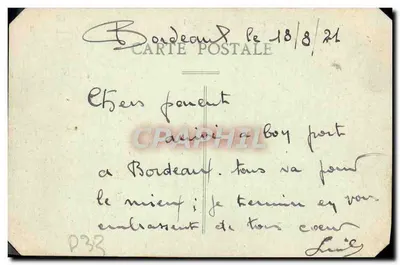 Bordeaux le 18/8/21
CARTE POSTALE
Chers parent
arrivé a bon port
CPAPHIL
a Bordeaux. tous va pour
le mieux ; je termine en vous
embrassent de tous coeur
D33